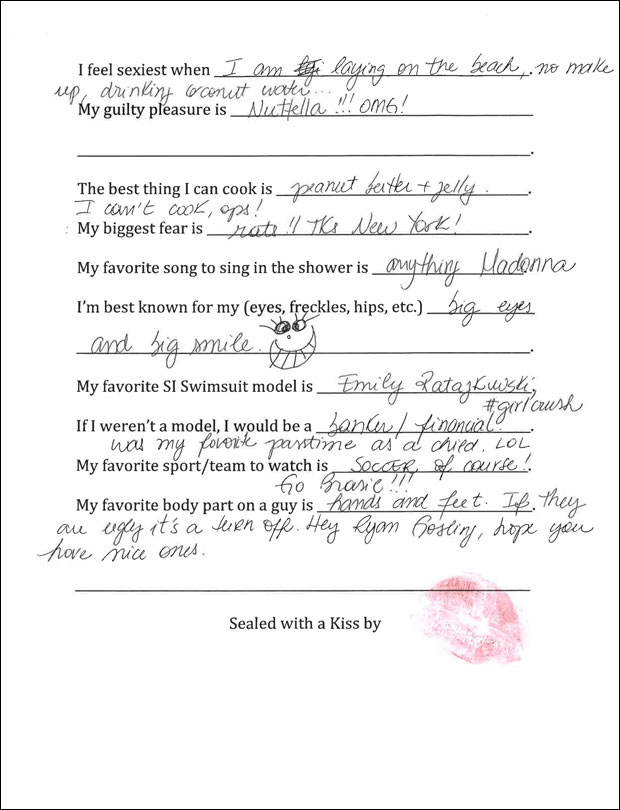 I feel sexiest when I am laying on the beach, no make
up, drinking coconut water...
My guilty pleasure is Nuttella !!! OMG!
The best thing I can cook is peanut butter + jelly.
I can't cook, ops!
My biggest fear is rats !! TKs New York!
My favorite song to sing in the shower is anything Madonna
I'm best known for my (eyes, freckles, hips, etc.) big eyes
and big smile.
My favorite SI Swimsuit model is Emily Ratajkowski,
#girlcrush
If I weren't a model, I would be a banker / financial.
was my favorite passtime as a child. LOL
My favorite sport/team to watch is SOCCER, of course!
Go Brasil!!!
My favorite body part on a guy is hands and feet. If they
are ugly it's a turn off. Hey Ryan Gosling, hope you
have nice ones.
Sealed with a Kiss by